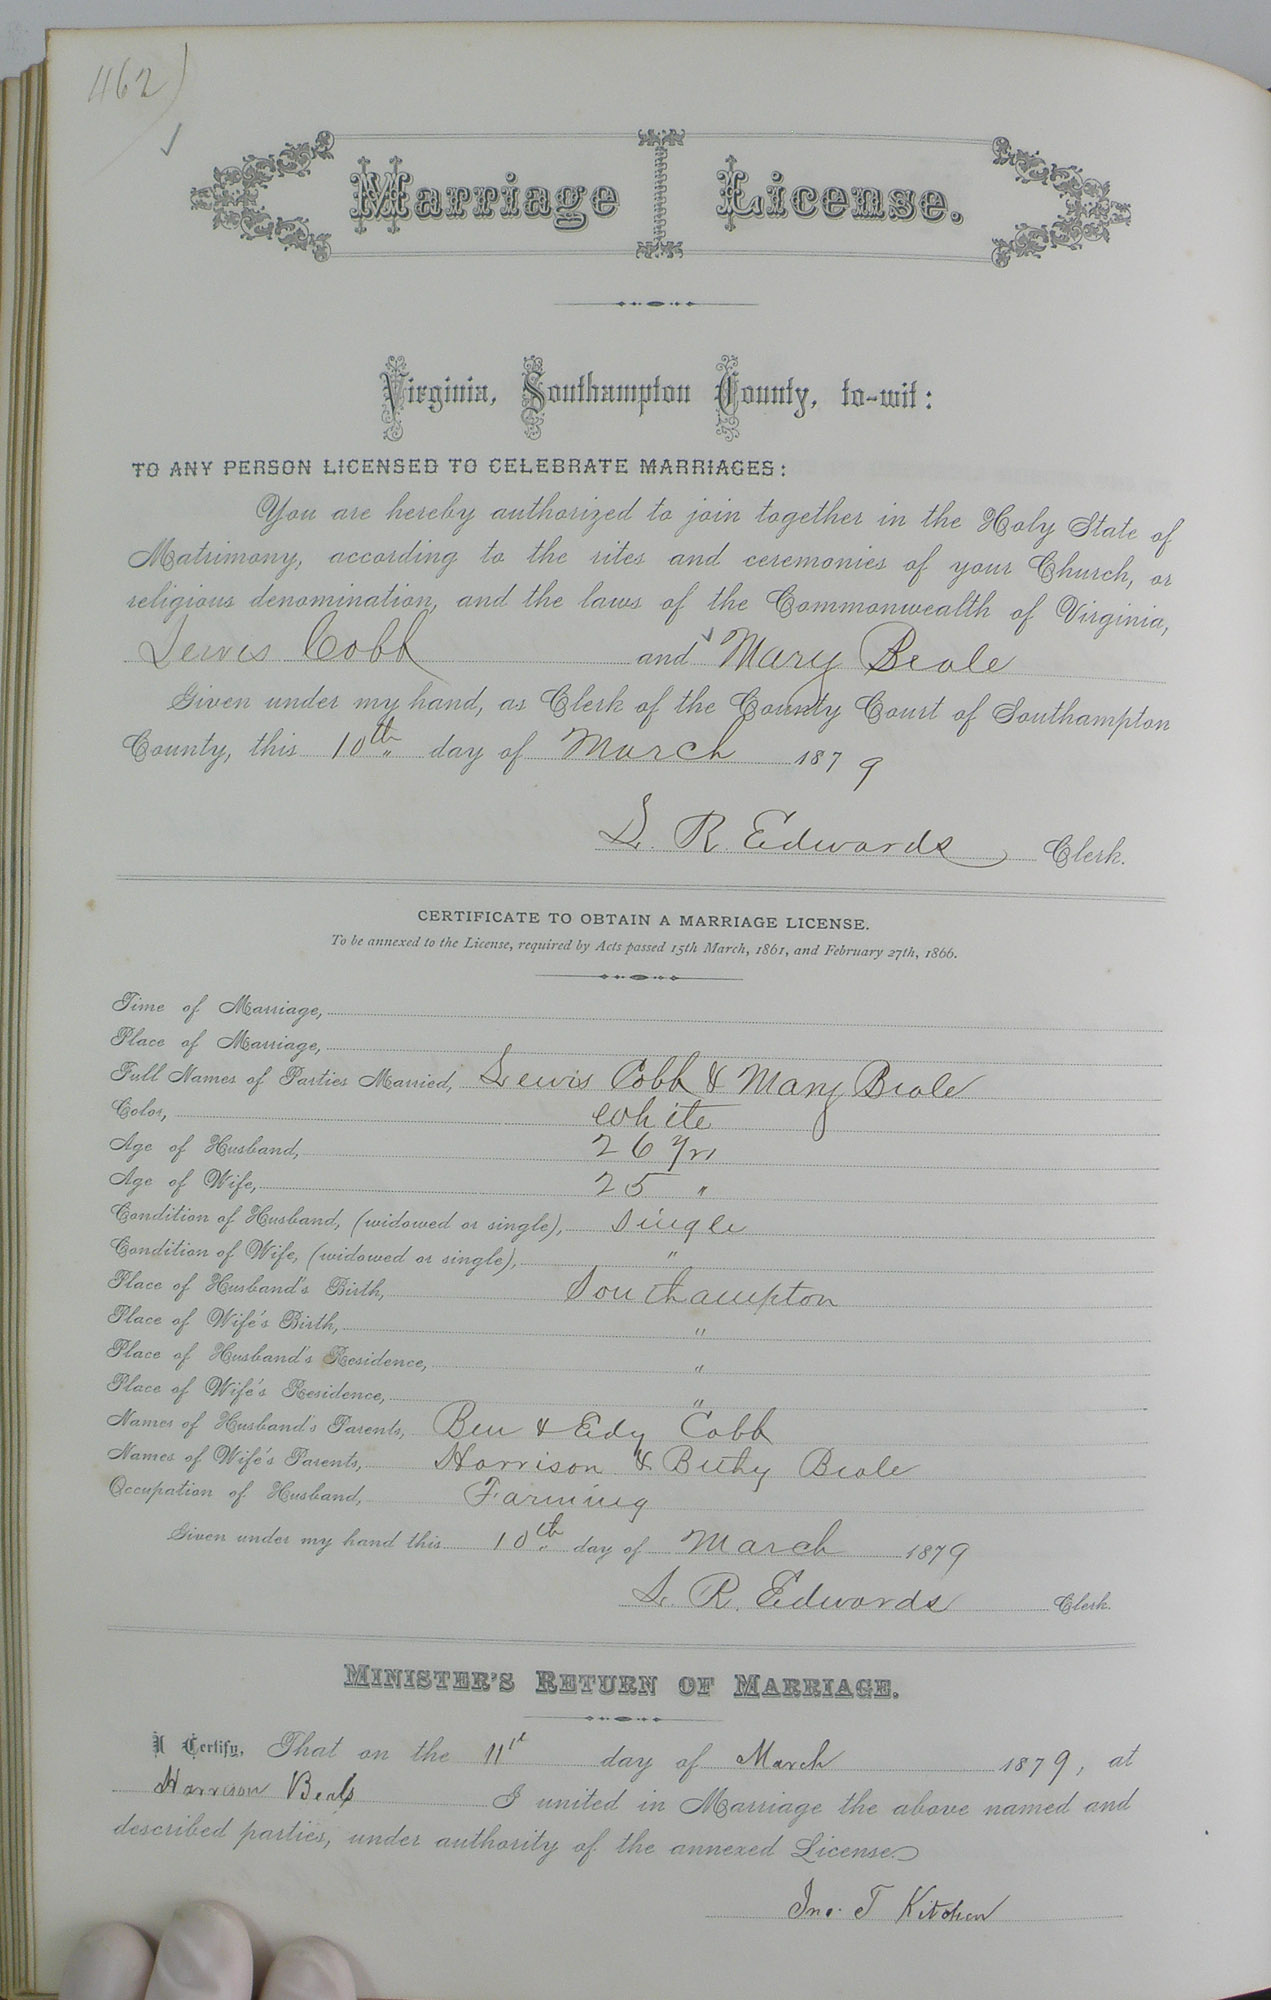 462)
Marriage License.
Virginia, Southampton County, to-wit:
TO ANY PERSON LICENSED TO CELEBRATE MARRIAGES:
You are hereby authorized to join together in the Holy State of
Matrimony, according to the rites and ceremonies of your Church, or
religious denomination, and the laws of the Commonwealth of Virginia,
Lewis Cobb and Mary Beale
Given under my hand, as Clerk of the County Court of Southampton
County, this 10th day of March 1879
L. R. Edwards Clerk.
CERTIFICATE TO OBTAIN A MARRIAGE LICENSE.
To be annexed to the License, required by Acts passed 15th March, 1861, and February 27th, 1866.
Time of Marriage,
Place of Marriage,
Full Names of Parties Married, Lewis Cobb & Mary Beale
Color, White
Age of Husband, 26 yrs
Age of Wife, 25 "
Condition of Husband, (widowed or single), Single
Condition of Wife, (widowed or single), "
Place of Husband's Birth, Southampton
Place of Wife's Birth, "
Place of Husband's Residence, "
Place of Wife's Residence, "
Names of Husband's Parents, Ben & Edy Cobb
Names of Wife's Parents, Harrison & Beale
Occupation of Husband, Farming
Given under my hand this 10th day of March 1879
L. R. Edwards Clerk.
MINISTER'S RETURN OF MARRIAGE.
I Certify, That on the 11 day of March 1879, at
Harrison Beals I united in Marriage the above named and
described parties, under authority of the annexed License.
Jno. T Kitchen